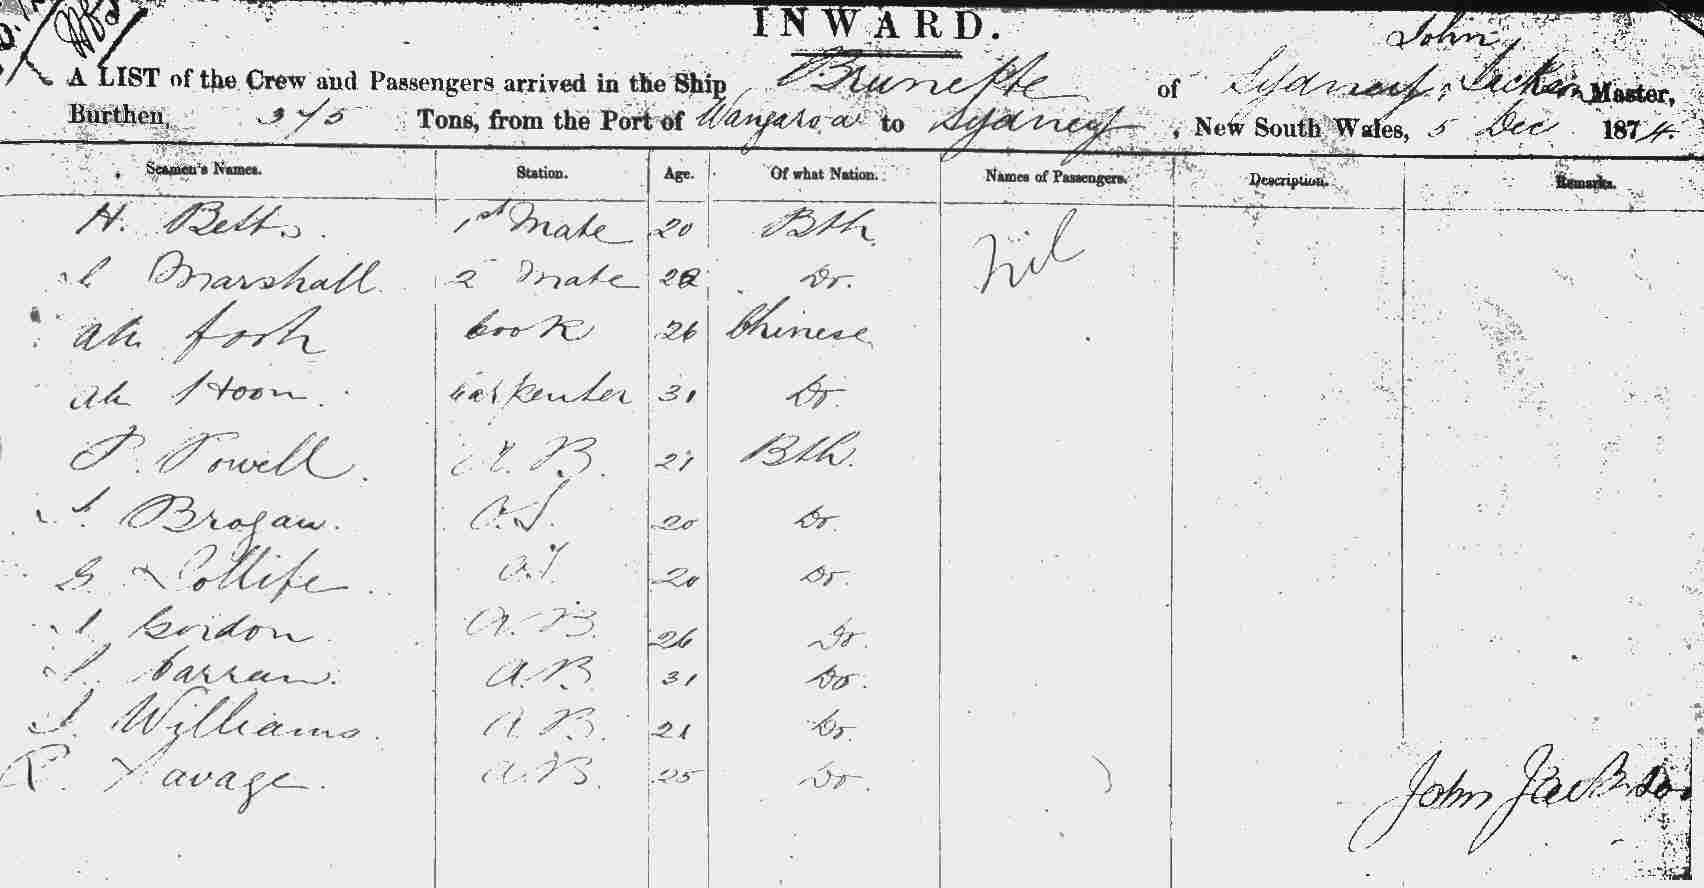 INWARD.
John
A LIST of the Crew and Passengers arrived in the Ship Brunette of Sydney, Jackson Master,
Burthen, 375 Tons, from the Port of Wangaroa to Sydney, New South Wales, 5 Dec 1874.
Seamen's Names. Station. Age. Of what Nation. Names of Passengers. Description. Remarks.
H. Betts. 1st Mate 20 Bth. Nil
Marshall. 2 Mate Do.
Ah fook Cook 26 Chinese
Ah Hoon. Carpenter 31 Do
P. Powell. A. B. 21 Bth.
Brogan. O.S. 20 Do.
G. Collife O.S. 20 Do.
Gordon A. B. 26 Do.
Carran. A.B. 31 Do.
J. Williams. A B. 21 Do.
R. Savage. A.B. 25 Do.
John Jackson